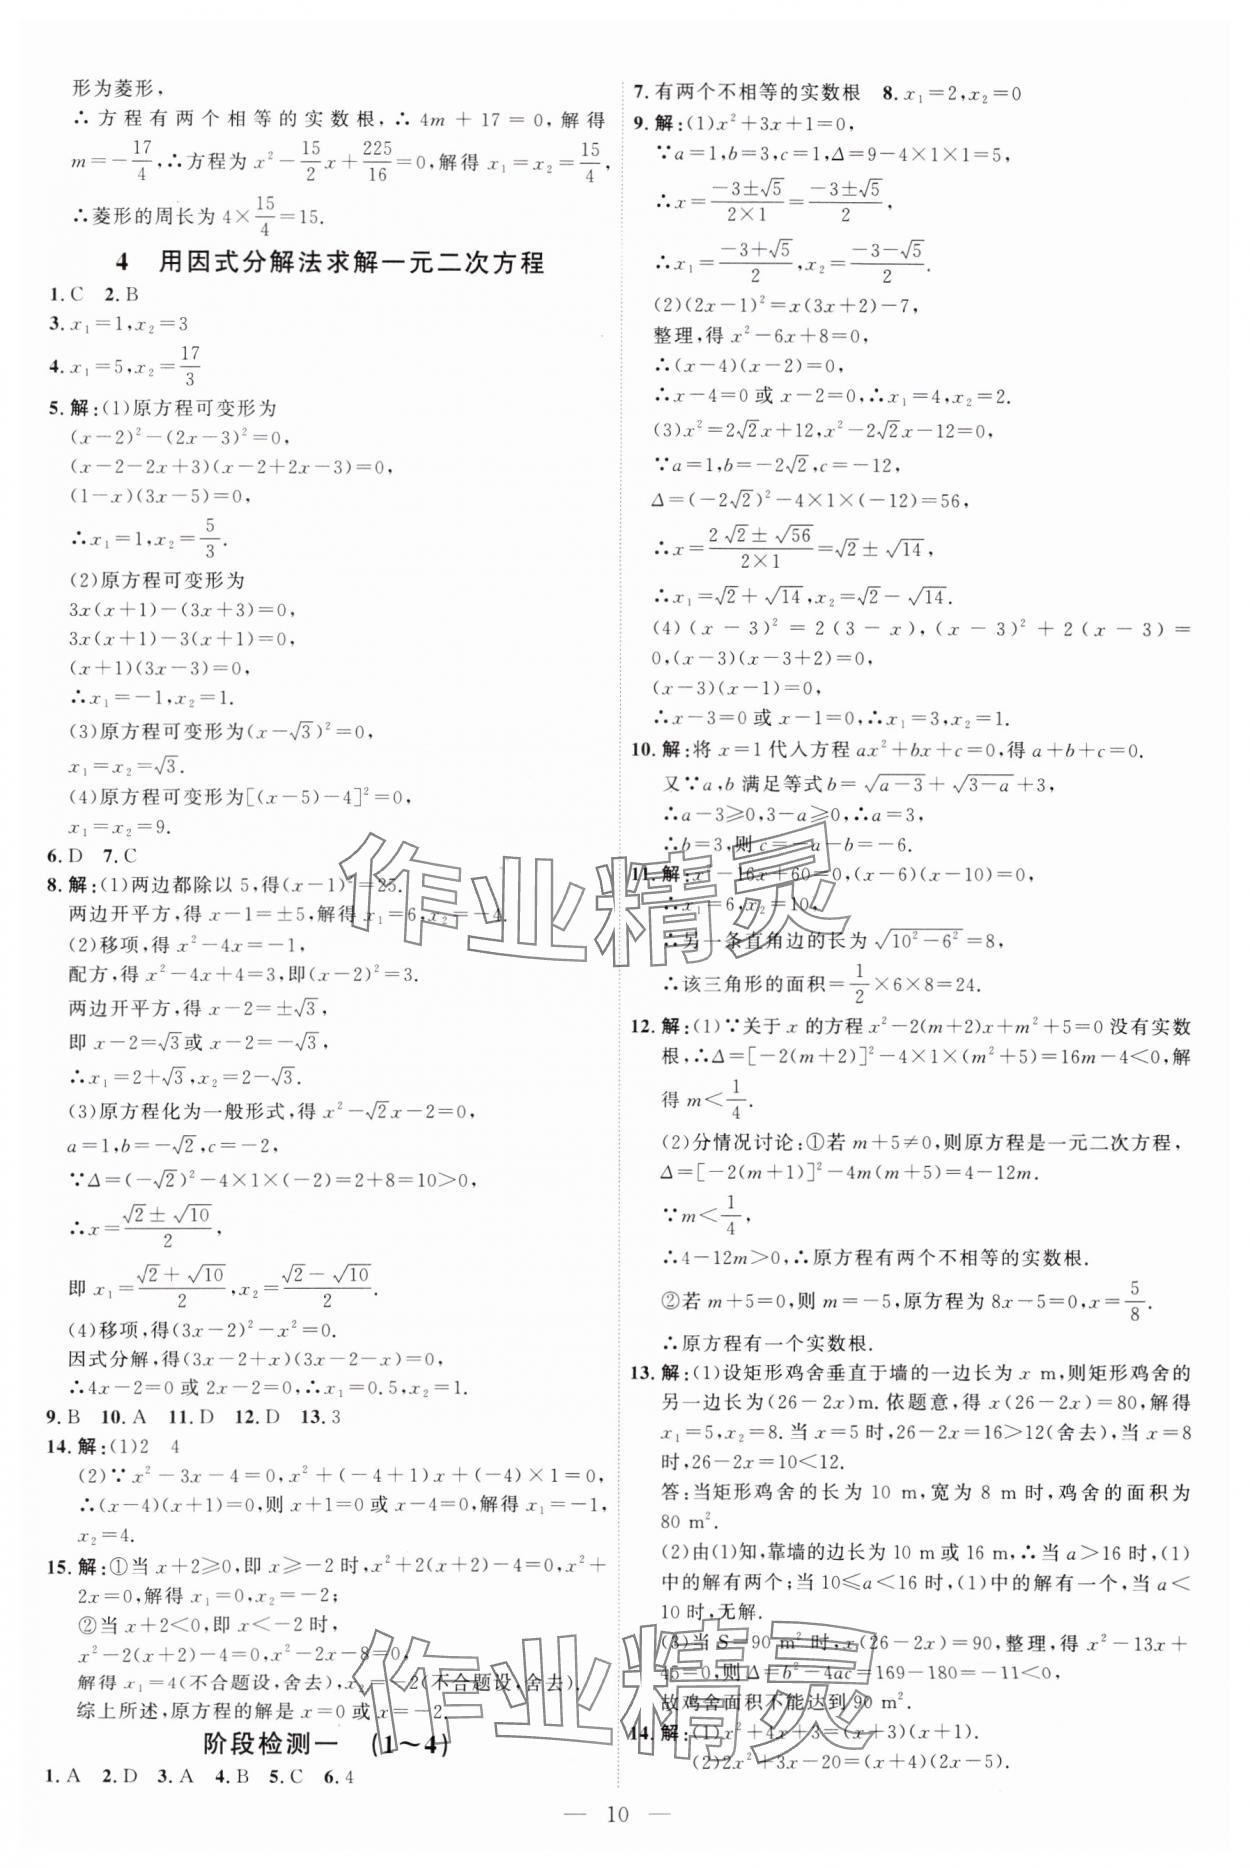 形为菱形，
∴方程有两个相等的实数根，∴4m+17=0，解得
m=−17/4，∴方程为 x²−15/2x+225/16=0，解得 x₁=x₂=15/4，
∴菱形的周长为 4×15/4=15.
4 用因式分解法求解一元二次方程
1. C 2. B
3. x₁=1，x₂=3
4. x₁=5，x₂=17/3
5. 解：(1)原方程可变形为
(x−2)²−(2x−3)²=0，
(x−2−2x+3)(x−2+2x−3)=0，
(1−x)(3x−5)=0，
∴x₁=1，x₂=5/3.
(2)原方程可变形为
3x(x+1)−(3x+3)=0，
3x(x+1)−3(x+1)=0，
(x+1)(3x−3)=0，
∴x₁=−1，x₂=1.
(3)原方程可变形为(x−√3)²=0，
x₁=x₂=√3.
(4)原方程可变形为[(x−5)−4]²=0，
x₁=x₂=9.
6. D 7. C
8. 解：(1)两边都除以 5，得(x−1)²=25.
两边开平方，得 x−1=±5，解得 x₁=6，x₂=−4.
(2)移项，得 x²−4x=−1，
配方，得 x²−4x+4=3，即(x−2)²=3.
两边开平方，得 x−2=±√3，
即 x−2=√3或 x−2=−√3，
∴x₁=2+√3，x₂=2−√3.
(3)原方程化为一般形式，得 x²−√2x−2=0，
a=1，b=−√2，c=−2，
∵Δ=(−√2)²−4×1×(−2)=2+8=10>0，
∴x=(√2±√10)/2，
即 x₁=(√2+√10)/2，x₂=(√2−√10)/2.
(4)移项，得(3x−2)²−x²=0.
因式分解，得(3x−2+x)(3x−2−x)=0，
∴4x−2=0 或 2x−2=0，∴x₁=0.5，x₂=1.
9. B 10. A 11. D 12. D 13. 3
14. 解：(1)2 4
(2)∵x²−3x−4=0，x²+(−4+1)x+(−4)×1=0，
∴(x−4)(x+1)=0，则 x+1=0 或 x−4=0，解得 x₁=−1，
x₂=4.
15. 解：①当 x+2≥0，即 x≥−2 时，x²+2(x+2)−4=0，x²+
2x=0，解得 x₁=0，x₂=−2；
②当 x+2<0，即 x<−2 时，
x²−2(x+2)−4=0，x²−2x−8=0，
解得 x₁=4(不合题设，舍去)，x₂=−2(不合题设，舍去).
综上所述，原方程的解是 x=0 或 x=−2.
阶段检测一 (1~4)
1. A 2. D 3. A 4. B 5. C 6. 4
7. 有两个不相等的实数根 8. x₁=2，x₂=0
9. 解：(1)x²+3x+1=0，
∵a=1，b=3，c=1，Δ=9−4×1×1=5，
∴x=(−3±√5)/(2×1)=(−3±√5)/2，
∴x₁=(−3+√5)/2，x₂=(−3−√5)/2.
(2)(2x−1)²=x(3x+2)−7，
整理，得 x²−6x+8=0，
∴(x−4)(x−2)=0，
∴x−4=0 或 x−2=0，∴x₁=4，x₂=2.
(3)x²=2√2x+12，x²−2√2x−12=0，
∵a=1，b=−2√2，c=−12，
Δ=(−2√2)²−4×1×(−12)=56，
∴x=(2√2±√56)/(2×1)=√2±√14，
∴x₁=√2+√14，x₂=√2−√14.
(4)(x−3)²=2(3−x)，(x−3)²+2(x−3)=
0，(x−3)(x−3+2)=0，
(x−3)(x−1)=0，
∴x−3=0 或 x−1=0，∴x₁=3，x₂=1.
10. 解：将 x=1 代入方程 ax²+bx+c=0，得 a+b+c=0.
又∵a，b 满足等式 b=√(a−3)+√(3−a)+3，
∴a−3≥0，3−a≥0，∴a=3，
∴b=3，则 c=−a−b=−6.
11. 解：x²−16x+60=0，(x−6)(x−10)=0，
∴x₁=6，x₂=10，
∴另一条直角边的长为 √(10²−6²)=8，
∴该三角形的面积=1/2×6×8=24.
12. 解：(1)∵关于 x 的方程 x²−2(m+2)x+m²+5=0 没有实数
根，∴Δ=[−2(m+2)]²−4×1×(m²+5)=16m−4<0，解
得 m<1/4.
(2)分情况讨论：①若 m+5≠0，则原方程是一元二次方程，
Δ=[−2(m+1)]²−4m(m+5)=4−12m.
∵m<1/4，
∴4−12m>0，∴原方程有两个不相等的实数根.
②若 m+5=0，则 m=−5，原方程为 8x−5=0，x=5/8.
∴原方程有一个实数根.
13. 解：(1)设矩形鸡舍垂直于墙的一边长为 x m，则矩形鸡舍的
另一边长为(26−2x)m. 依题意，得 x(26−2x)=80，解得
x₁=5，x₂=8. 当 x=5 时，26−2x=16>12(舍去)，当 x=8
时，26−2x=10<12.
答：当矩形鸡舍的长为 10 m，宽为 8 m 时，鸡舍的面积为
80 m².
(2)由(1)知，靠墙的边长为 10 m或 16 m，∴当 a>16 时，(1)
中的解有两个；当 10≤a<16 时，(1)中的解有一个，当 a<
10 时，无解.
(3)当 S=90 m² 时，x(26−2x)=90，整理，得 x²−13x+
45=0，则 Δ=b²−4ac=169−180=−11<0，
故鸡舍面积不能达到 90 m².
14. 解：(1)x²+4x+3=(x+3)(x+1).
(2)2x²+3x−20=(x+4)(2x−5).
— 10 —
作业精灵
作业精灵